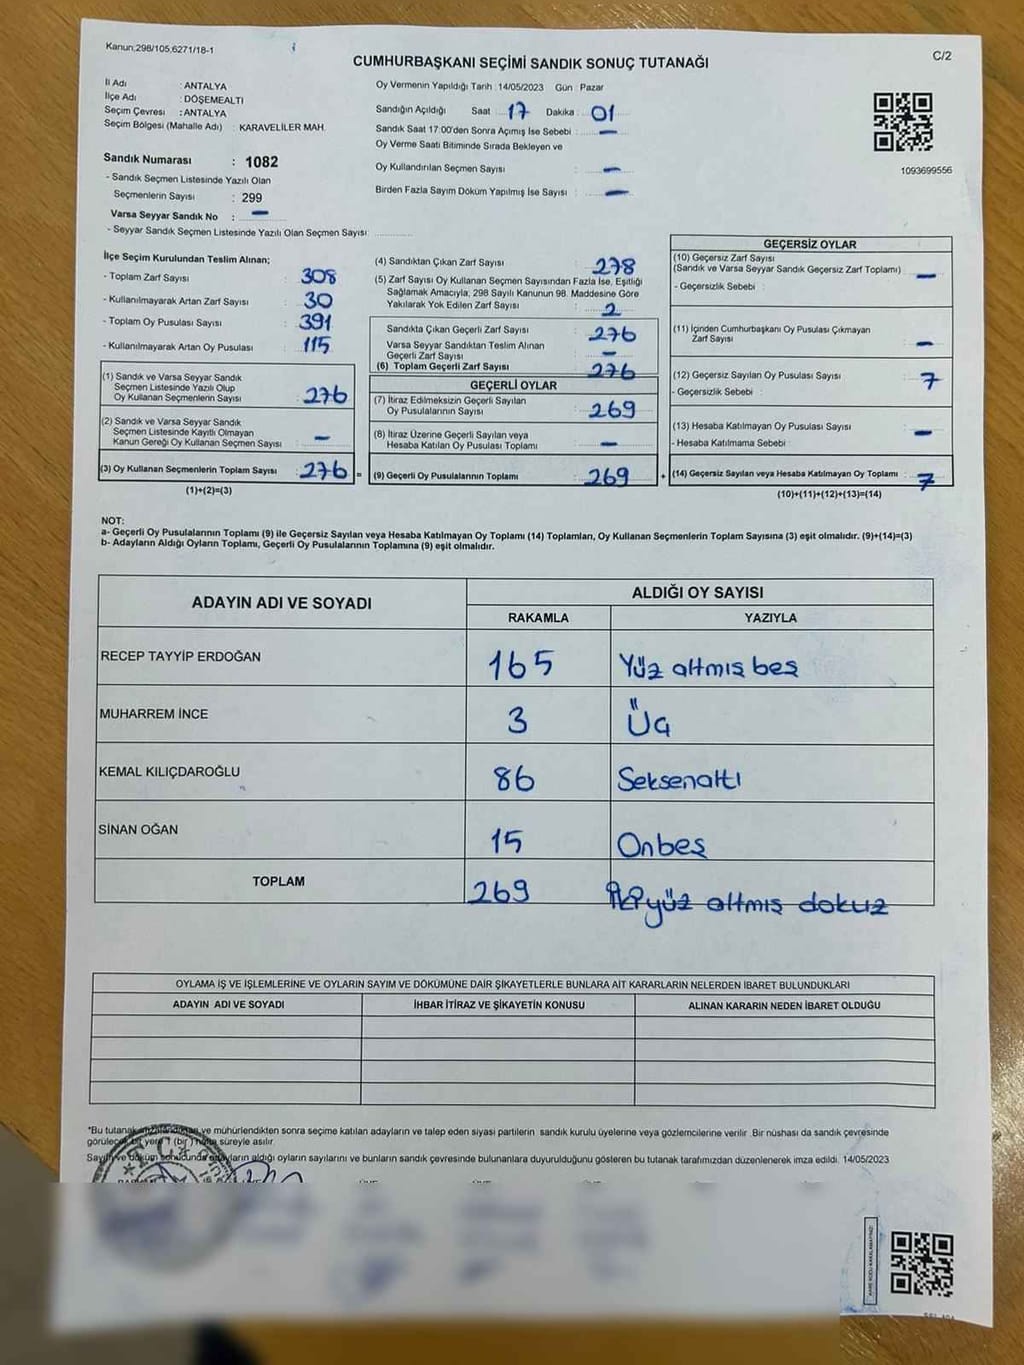 Kanun;298/105,6271/18-1
C/2
CUMHURBAŞKANI SEÇİMİ SANDIK SONUÇ TUTANAĞI
İl Adı : ANTALYA
İlçe Adı : DÖŞEMEALTI
Seçim Çevresi : ANTALYA
Seçim Bölgesi (Mahalle Adı) : KARAVELİLER MAH.
Sandık Numarası : 1082
- Sandık Seçmen Listesinde Yazılı Olan
Seçmenlerin Sayısı : 299
Varsa Seyyar Sandık No : —
- Seyyar Sandık Seçmen Listesinde Yazılı Olan Seçmen Sayısı: ............
Oy Vermenin Yapıldığı Tarih : 14/05/2023 Gün : Pazar
Sandığın Açıldığı Saat : 17 Dakika : 01
Sandık Saat 17:00'den Sonra Açımış İse Sebebi : —
Oy Verme Saati Bitiminde Sırada Bekleyen ve
Oy Kullandırılan Seçmen Sayısı : —
Birden Fazla Sayım Döküm Yapılmış İse Sayısı : —
1093699556
İlçe Seçim Kurulundan Teslim Alınan;
- Toplam Zarf Sayısı : 308
- Kullanılmayarak Artan Zarf Sayısı : 30
- Toplam Oy Pusulası Sayısı : 391
- Kullanılmayarak Artan Oy Pusulası : 115
(1) Sandık ve Varsa Seyyar Sandık
Seçmen Listesinde Yazılı Olup
Oy Kullanan Seçmenlerin Sayısı : 276
(2) Sandık ve Varsa Seyyar Sandık
Seçmen Listesinde Kayıtlı Olmayan
Kanun Gereği Oy Kullanan Seçmen Sayısı : —
(3) Oy Kullanan Seçmenlerin Toplam Sayısı : 276 =
(1)+(2)=(3)
(4) Sandıktan Çıkan Zarf Sayısı : 278
(5) Zarf Sayısı Oy Kullanan Seçmen Sayısından Fazla İse, Eşitliği
Sağlamak Amacıyla, 298 Sayılı Kanunun 98. Maddesine Göre
Yakılarak Yok Edilen Zarf Sayısı : 2
Sandıkta Çıkan Geçerli Zarf Sayısı : 276
Varsa Seyyar Sandıktan Teslim Alınan
Geçerli Zarf Sayısı : —
(6) Toplam Geçerli Zarf Sayısı : 276
GEÇERLİ OYLAR
(7) İtiraz Edilmeksizin Geçerli Sayılan
Oy Pusulalarının Sayısı : 269
(8) İtiraz Üzerine Geçerli Sayılan veya
Hesaba Katılan Oy Pusulası Toplamı : —
(9) Geçerli Oy Pusulalarının Toplamı : 269 +
GEÇERSİZ OYLAR
(10) Geçersiz Zarf Sayısı
(Sandık ve Varsa Seyyar Sandık Geçersiz Zarf Toplamı) : —
- Geçersizlik Sebebi :
(11) İçinden Cumhurbaşkanı Oy Pusulası Çıkmayan
Zarf Sayısı : —
(12) Geçersiz Sayılan Oy Pusulası Sayısı : 7
- Geçersizlik Sebebi :
(13) Hesaba Katılmayan Oy Pusulası Sayısı : —
- Hesaba Katılmama Sebebi :
(14) Geçersiz Sayılan veya Hesaba Katılmayan Oy Toplamı : 7
(10)+(11)+(12)+(13)=(14)
NOT:
a- Geçerli Oy Pusulalarının Toplamı (9) ile Geçersiz Sayılan veya Hesaba Katılmayan Oy Toplamı (14) Toplamları, Oy Kullanan Seçmenlerin Toplam Sayısına (3) eşit olmalıdır. (9)+(14)=(3)
b- Adayların Aldığı Oyların Toplamı, Geçerli Oy Pusulalarının Toplamına (9) eşit olmalıdır.
ADAYIN ADI VE SOYADI
ALDIĞI OY SAYISI
RAKAMLA YAZIYLA
RECEP TAYYİP ERDOĞAN 165 Yüz altmış beş
MUHARREM İNCE 3 Üç
KEMAL KILIÇDAROĞLU 86 Seksenaltı
SİNAN OĞAN 15 Onbeş
TOPLAM 269 İkiyüz altmış dokuz
OYLAMA İŞ VE İŞLEMLERİNE VE OYLARIN SAYIM VE DÖKÜMÜNE DAİR ŞİKAYETLERLE BUNLARA AİT KARARLARIN NELERDEN İBARET BULUNDUKLARI
ADAYIN ADI VE SOYADI İHBAR İTİRAZ VE ŞİKAYETİN KONUSU ALINAN KARARIN NEDEN İBARET OLDUĞU
*Bu tutanak ve mühürlendikten sonra seçime katılan adayların ve talep eden siyasi partilerin sandık kurulu üyelerine veya gözlemcilerine verilir .Bir nüshası da sandık çevresinde
görülecek bir yere 1 (bir) hafta süreyle asılır.
Sayım ve döküm sonucunda adayların aldığı oyların sayılarını ve bunların sandık çevresinde bulunanlara duyurulduğunu gösteren bu tutanak tarafımızdan düzenlenerek imza edildi. 14/05/2023